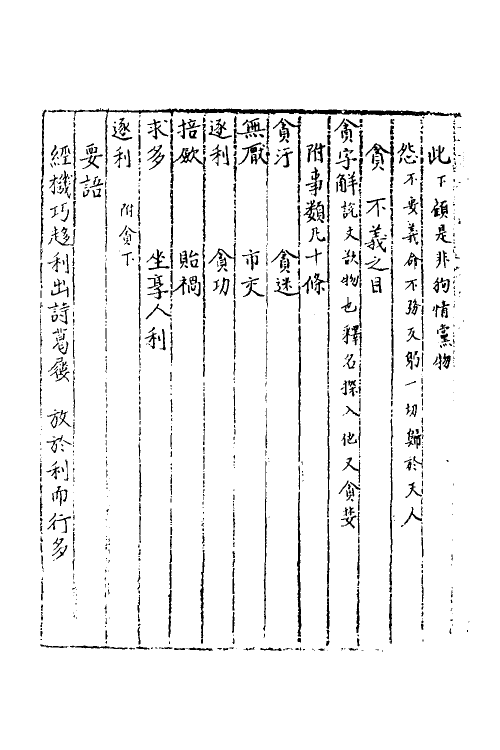 此下顧是非徇情黨物
怨不安義命不務反躬一切歸於天人
貪　不義之目
貪字解說文欲物也釋名探入他又貪婪
附事類凡十條
貪汙　貪迷
無厭　市交
逐利　貪功
掊歛　貽禍
求多　坐享人利
逐利　附貪下
要語
經機巧趍利出詩葛屨　放於利而行多